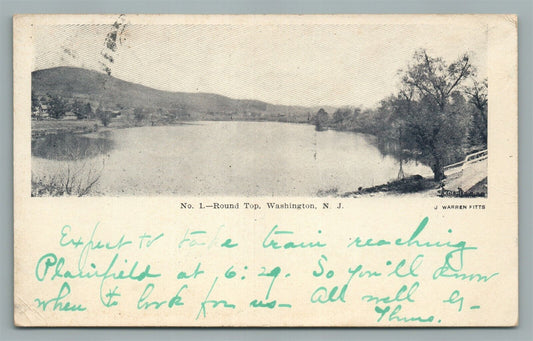 No. 1.—Round Top, Washington, N. J.
J WARREN FITTS
Expect to take train reaching
Plainfield at 6:29. So you'll know
when to look for us - All well
Thurs.